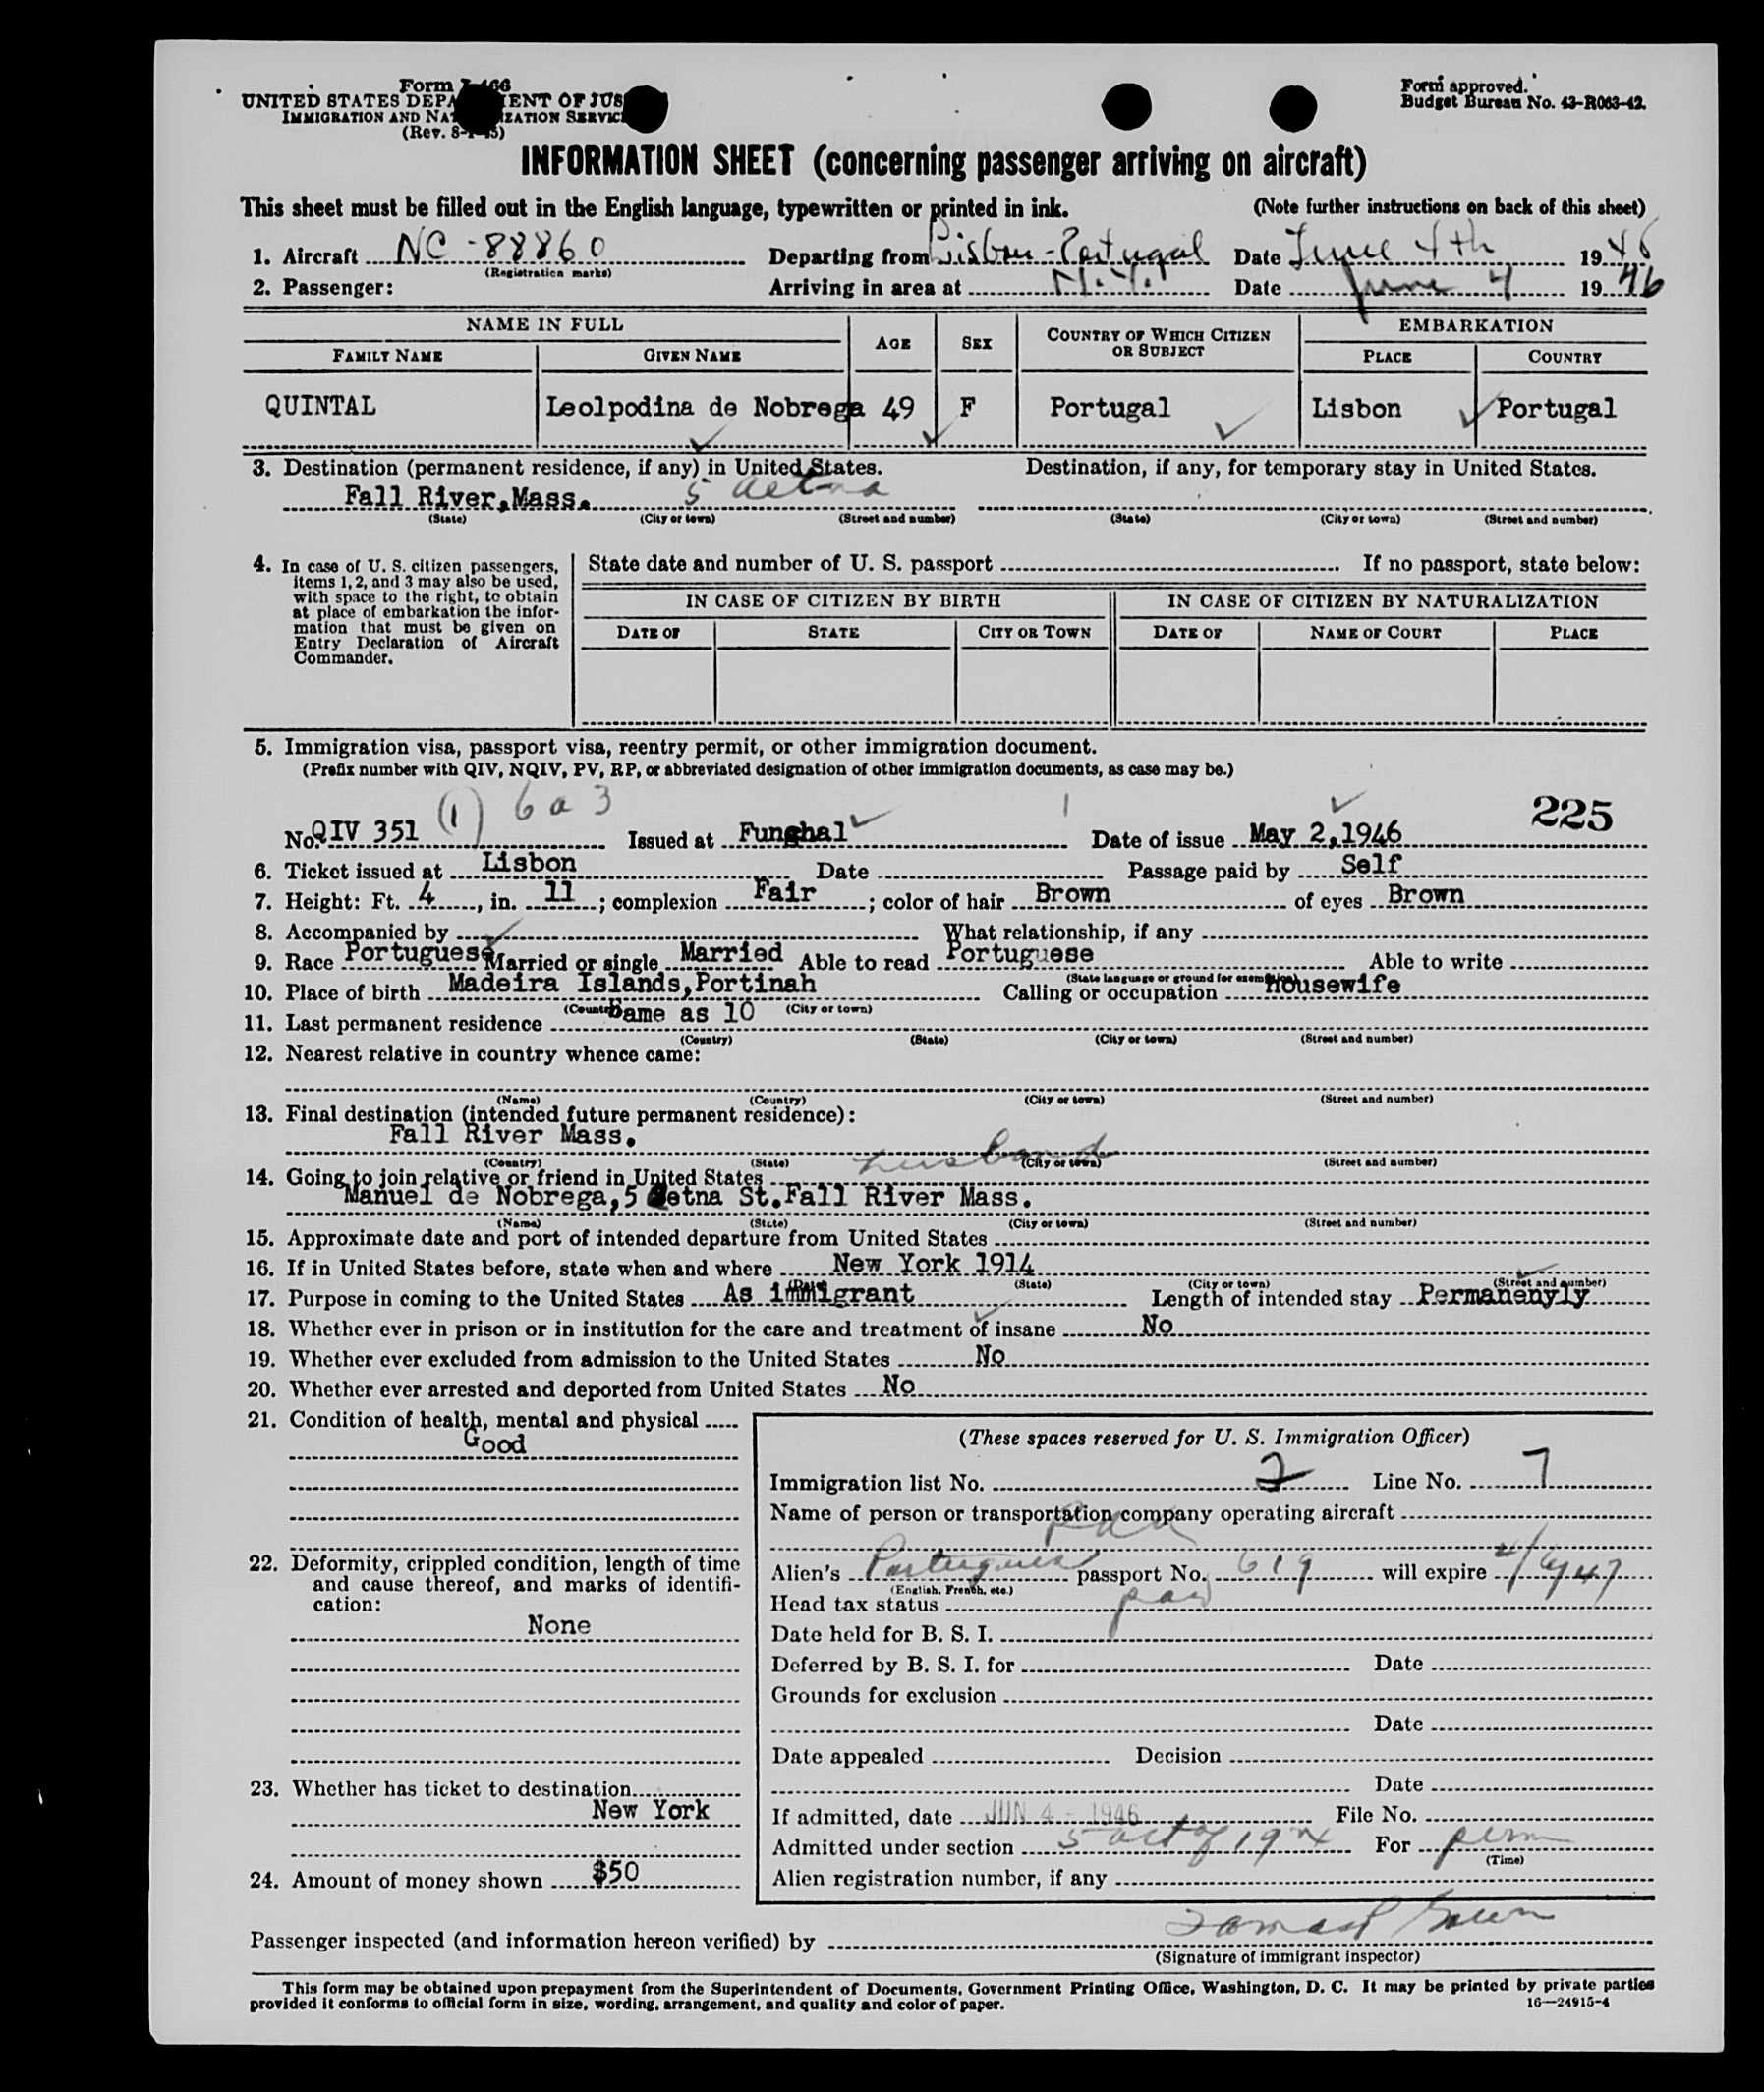 Form I-466
UNITED STATES DEPARTMENT OF JUSTICE
IMMIGRATION AND NATURALIZATION SERVICE
(Rev. 8-1-45)
Form approved.
Budget Bureau No. 43-R063-42.
INFORMATION SHEET (concerning passenger arriving on aircraft)
This sheet must be filled out in the English language, typewritten or printed in ink. (Note further instructions on back of this sheet)
1. Aircraft NC-88860 Departing from Lisbon-Portugal Date June 4th 1946
(Registration marks)
2. Passenger: Arriving in area at N.Y. Date June 4 1946
NAME IN FULL AGE SEX COUNTRY OF WHICH CITIZEN OR SUBJECT EMBARKATION
FAMILY NAME GIVEN NAME PLACE COUNTRY
QUINTAL Leolpodina de Nobrega 49 F Portugal Lisbon Portugal
3. Destination (permanent residence, if any) in United States. Destination, if any, for temporary stay in United States.
Fall River,Mass. 5 Aetna
(State) (City or town) (Street and number) (State) (City or town) (Street and number)
4. In case of U. S. citizen passengers, items 1, 2, and 3 may also be used, with space to the right, to obtain at place of embarkation the information that must be given on Entry Declaration of Aircraft Commander.
State date and number of U. S. passport If no passport, state below:
IN CASE OF CITIZEN BY BIRTH IN CASE OF CITIZEN BY NATURALIZATION
DATE OF STATE CITY OR TOWN DATE OF NAME OF COURT PLACE
5. Immigration visa, passport visa, reentry permit, or other immigration document.
(Prefix number with QIV, NQIV, PV, RP, or abbreviated designation of other immigration documents, as case may be.)
(1) 6 a 3 225
No. QIV 351 Issued at Funchal Date of issue May 2,1946
6. Ticket issued at Lisbon Date Passage paid by Self
7. Height: Ft. 4, in. 11; complexion Fair; color of hair Brown of eyes Brown
8. Accompanied by What relationship, if any
9. Race Portuguese Married or single Married Able to read Portuguese Able to write
(State language or ground for exemption)
10. Place of birth Madeira Islands,Portinah Calling or occupation Housewife
(Country) (City or town)
11. Last permanent residence Same as 10
(Country) (State) (City or town) (Street and number)
12. Nearest relative in country whence came:
(Name) (Country) (City or town) (Street and number)
13. Final destination (intended future permanent residence):
Fall River Mass.
(Country) (State) (City or town) (Street and number)
14. Going to join relative or friend in United States husband
Manuel de Nobrega,5 Aetna St.Fall River Mass.
(Name) (State) (City or town) (Street and number)
15. Approximate date and port of intended departure from United States
16. If in United States before, state when and where New York 1914
(Date) (State) (City or town) (Street and number)
17. Purpose in coming to the United States As immigrant Length of intended stay Permanenyly
18. Whether ever in prison or in institution for the care and treatment of insane No
19. Whether ever excluded from admission to the United States No
20. Whether ever arrested and deported from United States No
21. Condition of health, mental and physical
Good
22. Deformity, crippled condition, length of time and cause thereof, and marks of identification:
None
23. Whether has ticket to destination
New York
24. Amount of money shown $50
(These spaces reserved for U. S. Immigration Officer)
Immigration list No. 2 Line No. 7
Name of person or transportation company operating aircraft
Paa
Alien's Portuguese passport No. 619 will expire 4/6/47
(English, French, etc.)
Head tax status paid
Date held for B. S. I.
Deferred by B. S. I. for Date
Grounds for exclusion
Date
Date appealed Decision
Date
If admitted, date JUN 4 - 1946 File No.
Admitted under section 5 act of 1924 For perm
(Time)
Alien registration number, if any
Passenger inspected (and information hereon verified) by
(Signature of immigrant inspector)
This form may be obtained upon prepayment from the Superintendent of Documents, Government Printing Office, Washington, D. C. It may be printed by private parties
provided it conforms to official form in size, wording, arrangement, and quality and color of paper. 16—24915-4